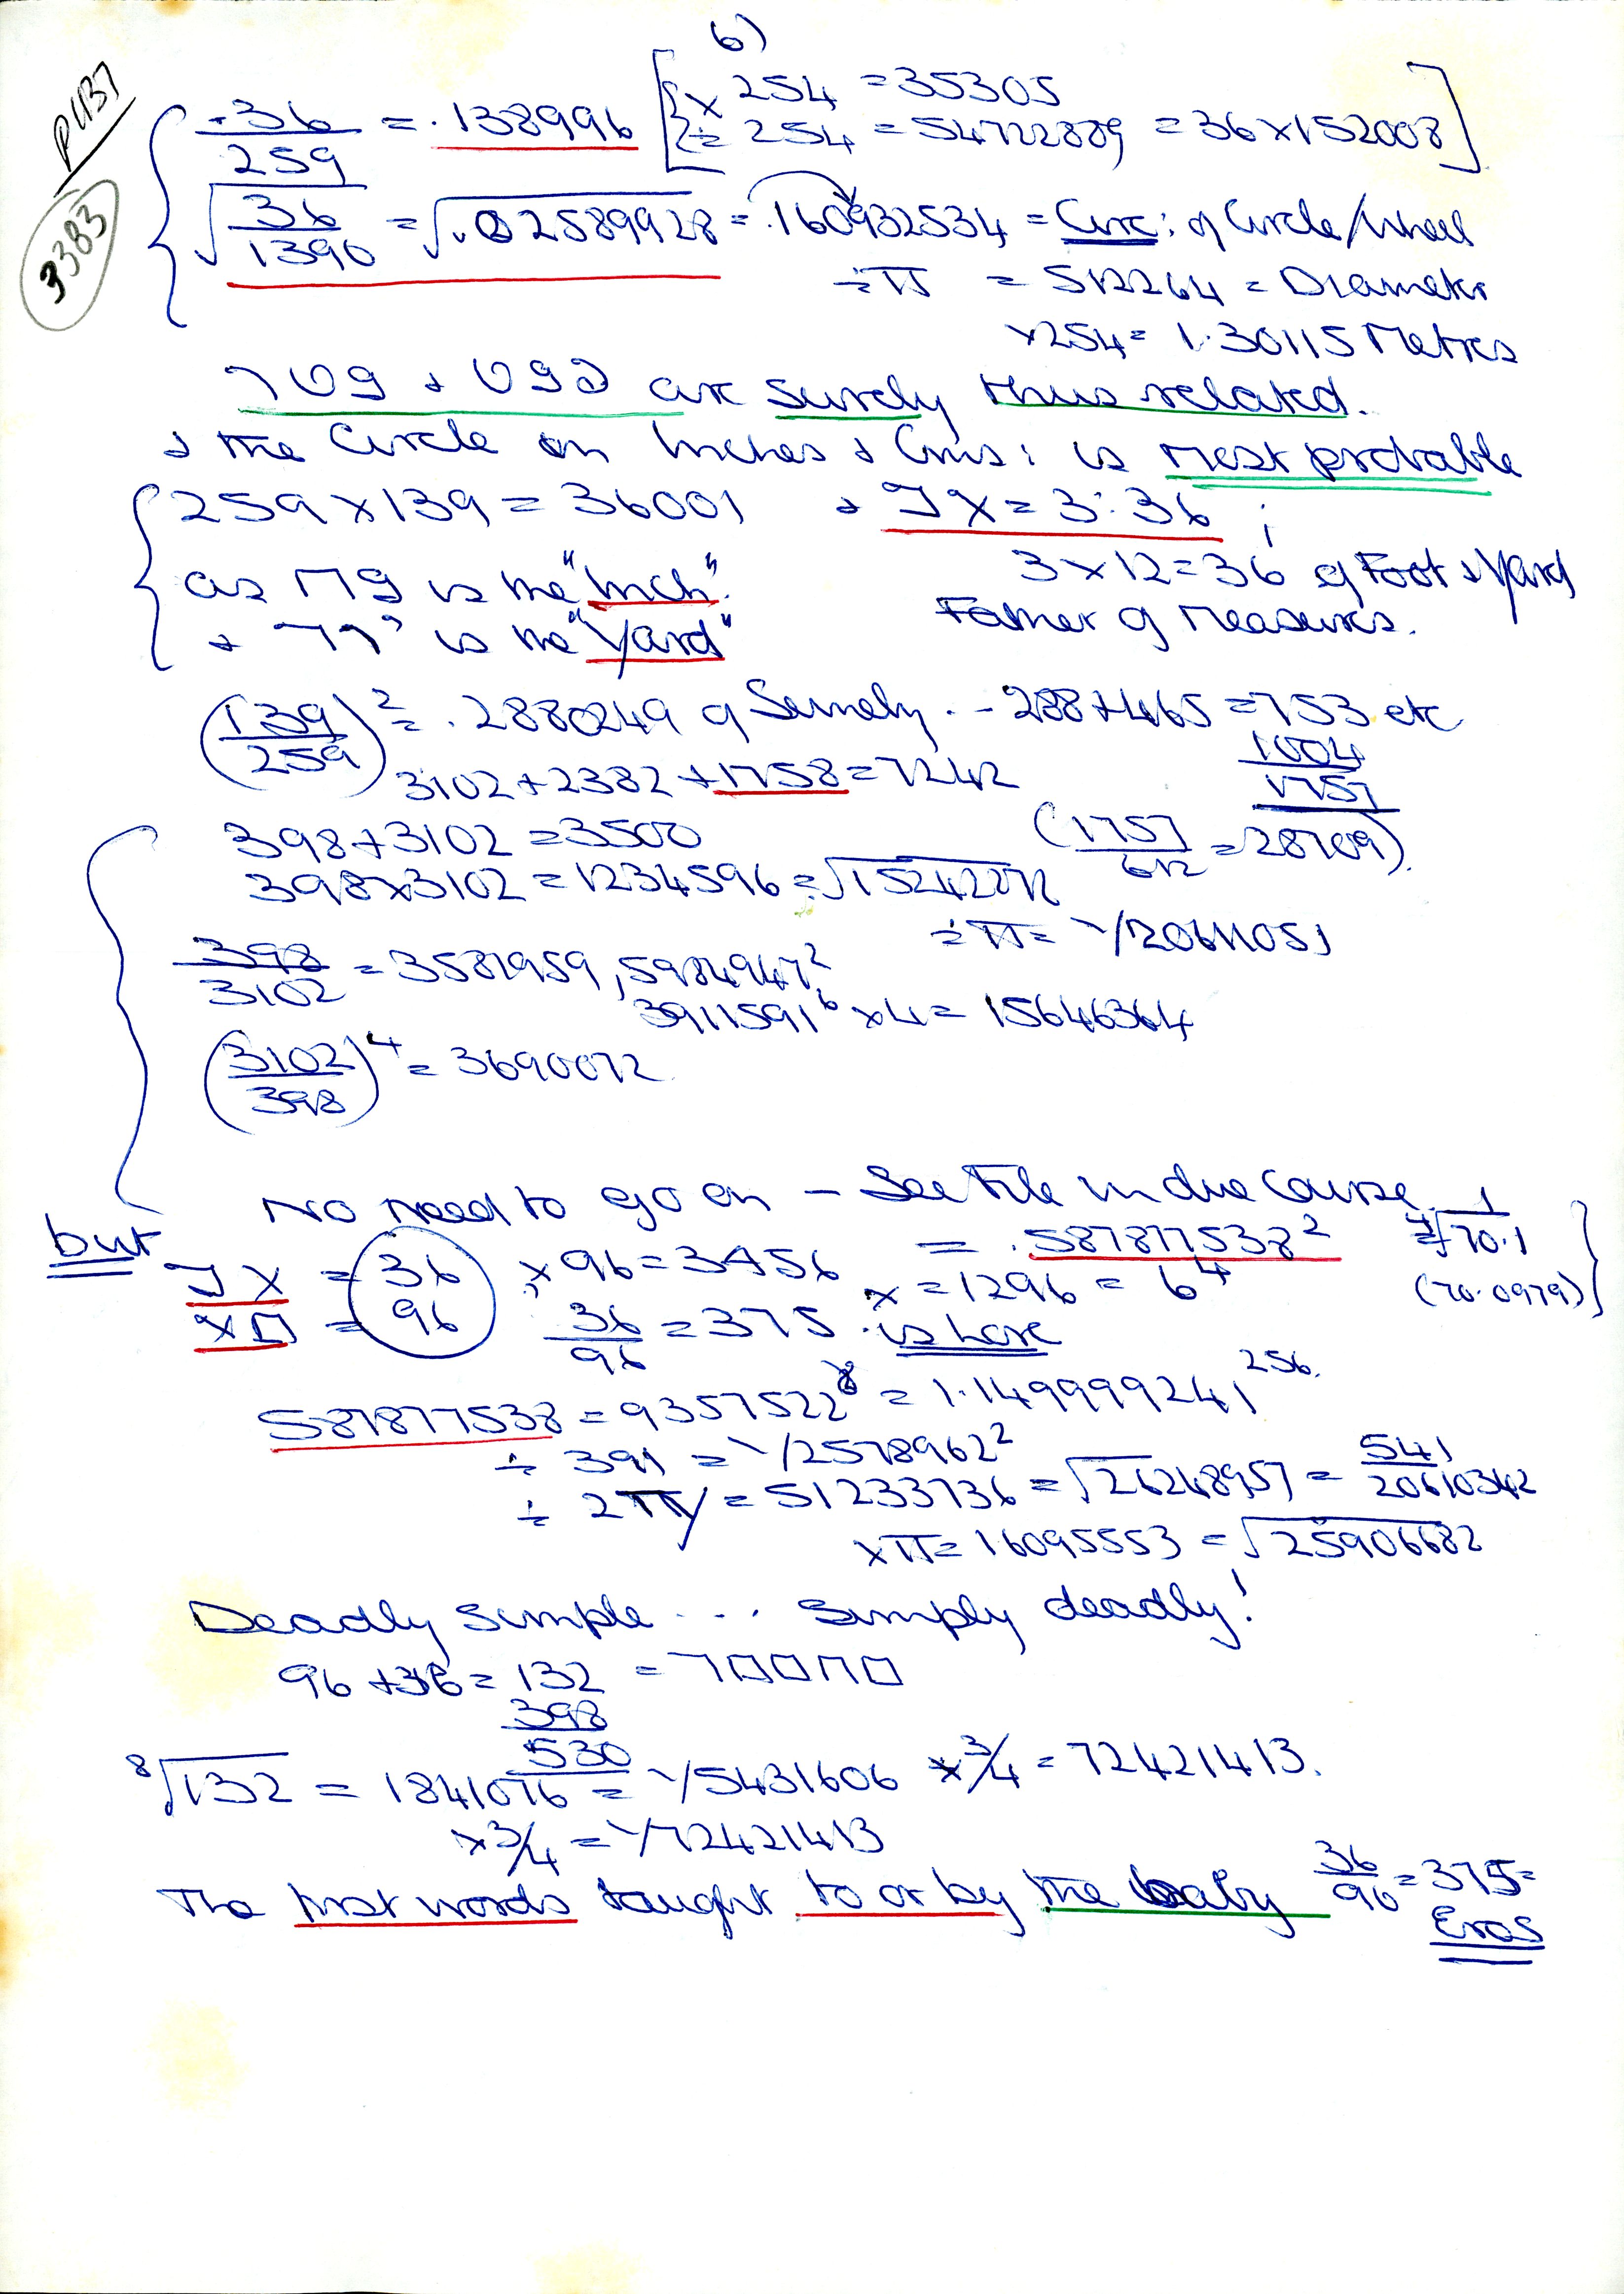 6)
P437
3383
.36/259 = .138996 [ { × 254 = 35305
÷ 254 = 54722889 = 36 × 152008 ]
√36/1390 = √.02589928 = .160932534 = Circ: of Circle/Wheel
÷ π = 512264 = Diameter
× 254 = 1.30115 Metres
are surely thus related.
& the Circle on Inches & Cms: is most probable
259 × 139 = 36001 & = 3:36 ;
3 × 12 = 36 of Foot & Yard
as is the "Inch".
Father of Measures.
& is the "Yard"
(139/259)² = .2880249 of Semely. - 288 + 465 = 753 etc
1004
1757
3102 + 2382 + 1758 = 7242
398 + 3102 = 3500 (1757/612 = 28709).
398 × 3102 = 1234596 = √15242272
÷ π = √/20611051
398/3102 = 3581959, 5984947²
3911591⁶ × 4 = 15646364
(3102/398)⁴ = 3690072
No need to go on - See File in due course
but
= 36 , × 96 = 3456 = .587877538² 1/70.1
= 96 36/96 = 375 × = 1296 = 6⁴ (70.0979)
is here
587877538 = 9357522⁸ = 1.149999241²⁵⁶.
÷ 391 = √/2578962²
÷ 2π = 51233736 = √26248957 = 541/20610342
× π = 16095553 = √25906682
Deadly simple ... Simply deadly!
96 + 36 = 132 =
398
530
⁸√132 = 1841076 = √/5431606 × 3/4 = 72421413.
× 3/4 = √/72421413
The first words taught to or by the baby 36/96 = 375 =
Eros